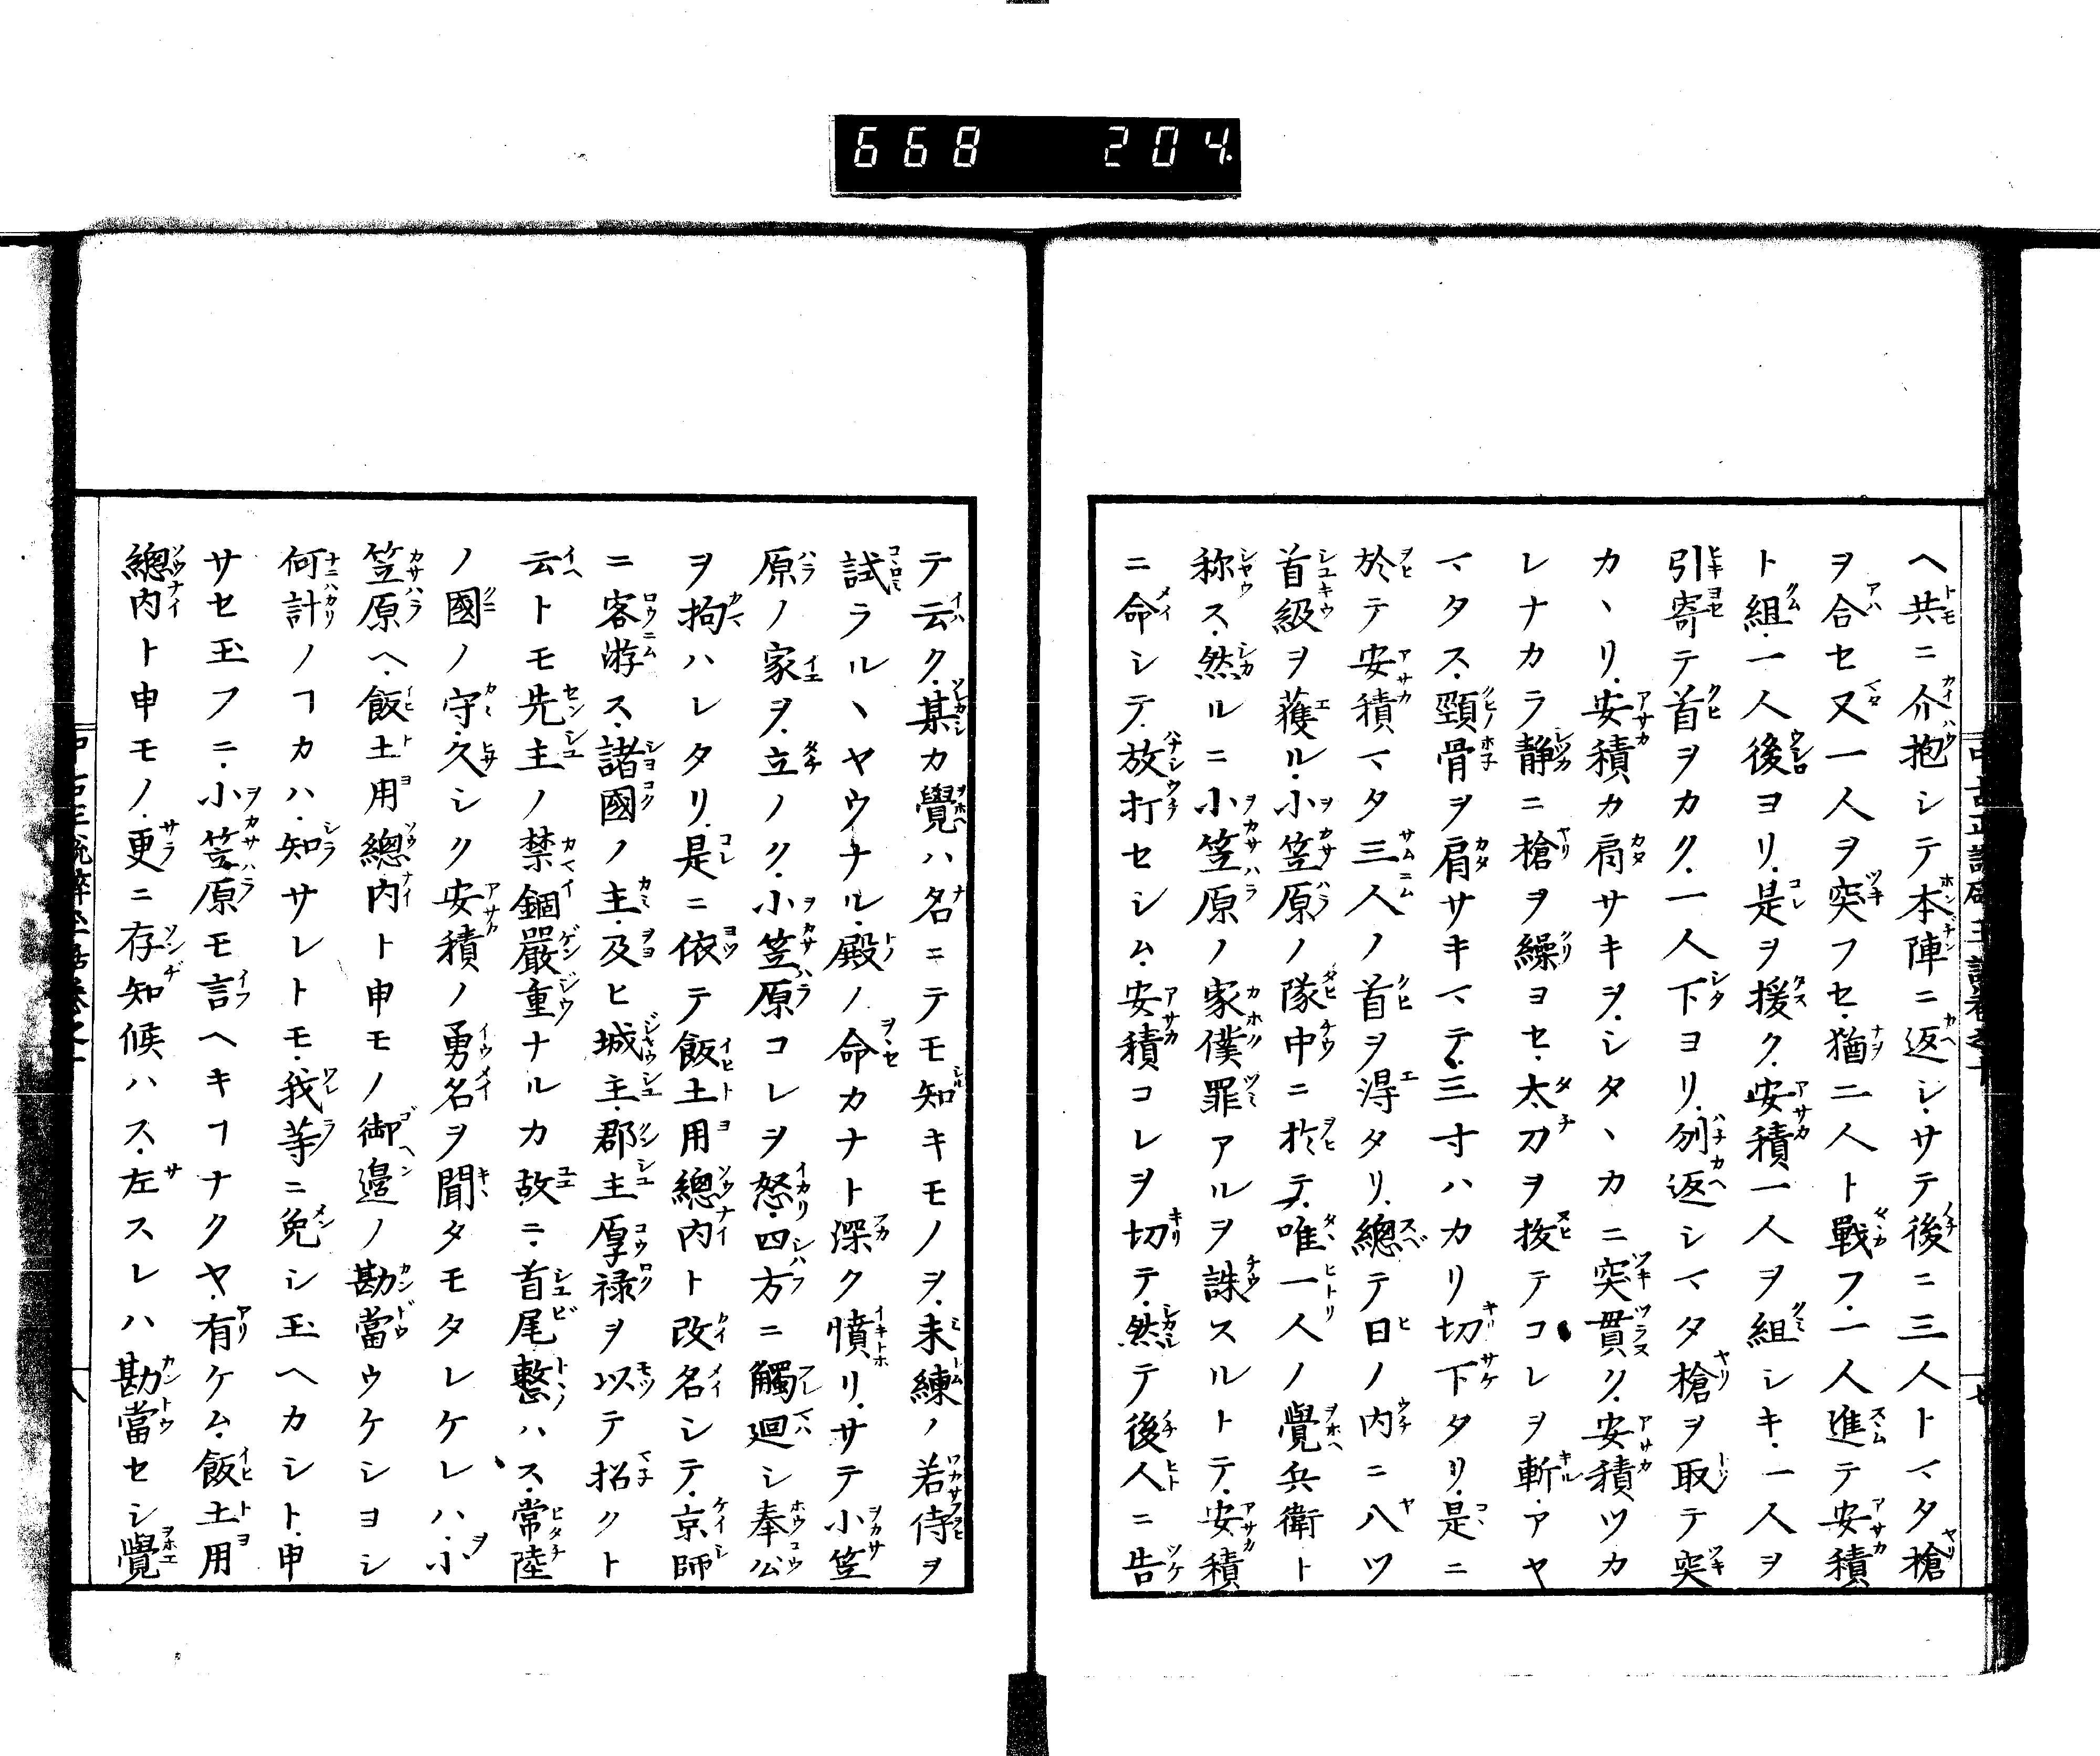 668 204
ヘ共ニ介抱シテ本陣ニ返シ.サテ後ニ三人トマタ槍
ヲ合セ又一人ヲ突フセ.猶二人ト戰フ.一人進テ安積
ト組.一人後ヨリ.是ヲ援ク.安積一人ヲ組シキ.一人ヲ
引寄テ首ヲカク.一人下ヨリ.刎返シマタ槍ヲ取テ突
カヽリ.安積カ肩サキヲ.シタヽカニ突貫ク.安積ツカ
レナカラ静ニ槍ヲ繰ヨセ.太刀ヲ拔テコレヲ斬.アヤ
マタス.頸骨ヲ肩サキマテ.三寸ハカリ切下タリ.是ニ
於テ安積マタ三人ノ首ヲ得タリ.總テ日ノ内ニ八ツ
首級ヲ獲ル.小笠原ノ隊中ニ於テ.唯一人ノ覺兵衛ト
称ス.然ルニ小笠原ノ家僕罪アルヲ誅スルトテ.安積
ニ命シテ.放打セシム.安積コレヲ切テ.然テ後人ニ告
テ云ク.某カ覺ハ名ニテモ知キモノヲ.未練ノ若侍ヲ
試ラルヽヤウナル.殿ノ命カナト深ク憤リ.サテ小笠
原ノ家ヲ.立ノク.小笠原コレヲ怒.四方ニ觸廻シ奉公
ヲ拘ハレタリ.是ニ依テ飯土用總内ト改名シテ.京師
ニ客游ス.諸國ノ主.及ヒ城主.郡主厚禄ヲ以テ招クト
云トモ先主ノ禁錮嚴重ナルカ故ニ.首尾整ハス.常陸
ノ國ノ守.久シク安積ノ勇名ヲ聞タモタレケレハ.小
笠原ヘ.飯土用總内ト申モノ御邊ノ勘當ウケシヨシ
何計ノヿカハ.知サレトモ.我等ニ免シ玉ヘカシト.申
サセ玉フニ.小笠原モ言ヘキヿナクヤ.有ケム.飯土用
總内ト申モノ.更ニ存知候ハス.左スレハ勘當セシ覺